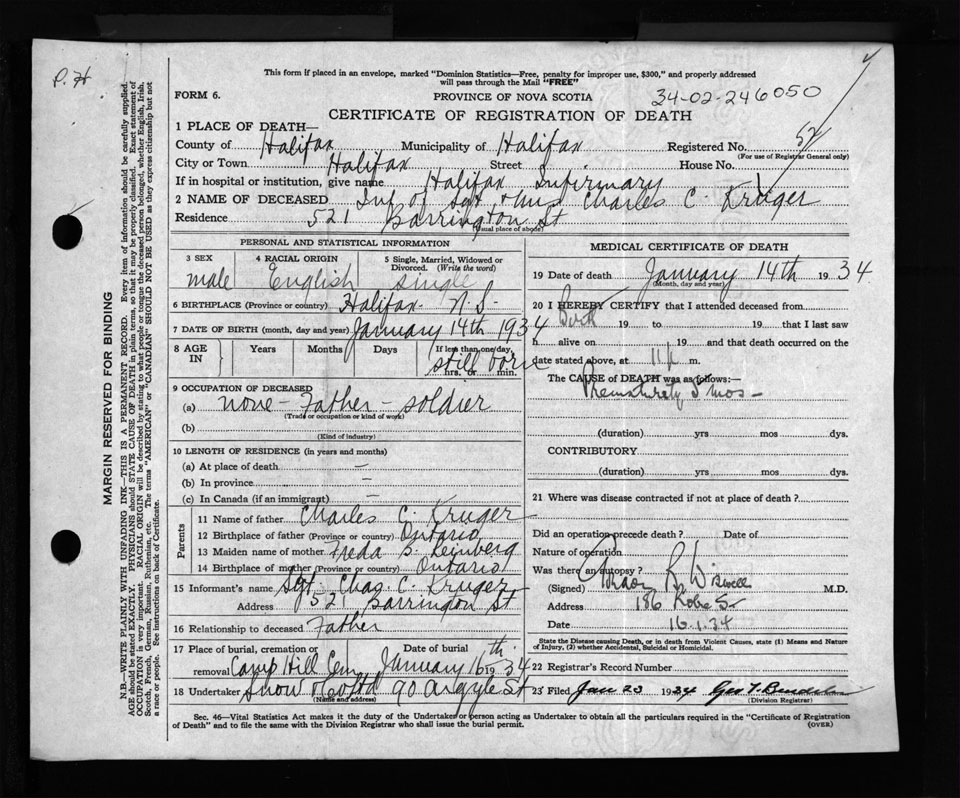 P.H
This form if placed in an envelope, marked "Dominion Statistics—Free, penalty for improper use, $300," and properly addressed
will pass through the Mail "FREE"
FORM 6.
PROVINCE OF NOVA SCOTIA
34-02-246050
CERTIFICATE OF REGISTRATION OF DEATH
1 PLACE OF DEATH—
County of Halifax Municipality of Halifax Registered No. 52
(For use of Registrar General only)
City or Town Halifax Street House No.
If in hospital or institution, give name Halifax Infirmary
2 NAME OF DECEASED Inf of Sgt & Mrs Charles C. Kruger
Residence 521 Barrington St
(usual place of abode)
PERSONAL AND STATISTICAL INFORMATION
3 SEX 4 RACIAL ORIGIN 5 Single, Married, Widowed or
Divorced. (Write the word)
male English single
6 BIRTHPLACE (Province or country) Halifax N.S-
7 DATE OF BIRTH (month, day and year) January 14th 1934
8 AGE IN Years Months Days If less than one day,
still born
hrs. or min.
9 OCCUPATION OF DECEASED
(a) none - Father - soldier
(Trade or occupation or kind of work)
(b)
(Kind of industry)
10 LENGTH OF RESIDENCE (in years and months)
(a) At place of death —
(b) In province —
(c) In Canada (if an immigrant) —
Parents
11 Name of father Charles C. Kruger
12 Birthplace of father (Province or country) Ontario
13 Maiden name of mother Freda S. Leinberg
14 Birthplace of mother (Province or country) Ontario
15 Informant's name Sgt. Chas. C. Kruger
Address 521 Barrington St
16 Relationship to deceased Father
17 Place of burial, cremation or Date of burial
removal Camp Hill Cem January 16th 1934
18 Undertaker Snow & Co Ltd 90 Argyle St
(Name and address)
MEDICAL CERTIFICATE OF DEATH
19 Date of death January 14th 1934
(Month, day and year)
20 I HEREBY CERTIFY that I attended deceased from
Birth 19 to 19 that I last saw
h alive on 19 and that death occurred on the
date stated above, at 11 p m.
The CAUSE of DEATH was as follows:—
Prematurely mos -
(duration) yrs mos dys.
CONTRIBUTORY
(duration) yrs mos dys.
21 Where was disease contracted if not at place of death?
Did an operation precede death? Date of
Nature of operation
Was there an autopsy?
(Signed) R. Wiswell M.D.
Address 186
Date 16.1.34
State the Disease causing Death, or in death from Violent Causes, state (1) Means and Nature
of Injury, (2) whether Accidental, Suicidal or Homicidal.
22 Registrar's Record Number
23 Filed Jan 23 1934 Geo T.
(Division Registrar)
Sec. 46—Vital Statistics Act makes it the duty of the Undertaker or person acting as Undertaker to obtain all the particulars required in the "Certificate of Registration
of Death" and to file the same with the Division Registrar who shall issue the burial permit. (OVER)
MARGIN RESERVED FOR BINDING
N.B.—WRITE PLAINLY WITH UNFADING INK—THIS IS A PERMANENT RECORD. Every item of information should be carefully supplied.
AGE should be stated EXACTLY. PHYSICIANS should STATE CAUSE OF DEATH in plain terms, so that it may be properly classified. Exact statement of
OCCUPATION is very important. RACIAL ORIGIN will be described by stating to what people or tongue the deceased person belonged, whether English, Irish,
Scotch, French, German, Russian, Ruthenian, etc. The terms "AMERICAN" or "CANADIAN" SHOULD NOT BE USED as they express citizenship but not
a race or people. See instructions on back of Certificate.